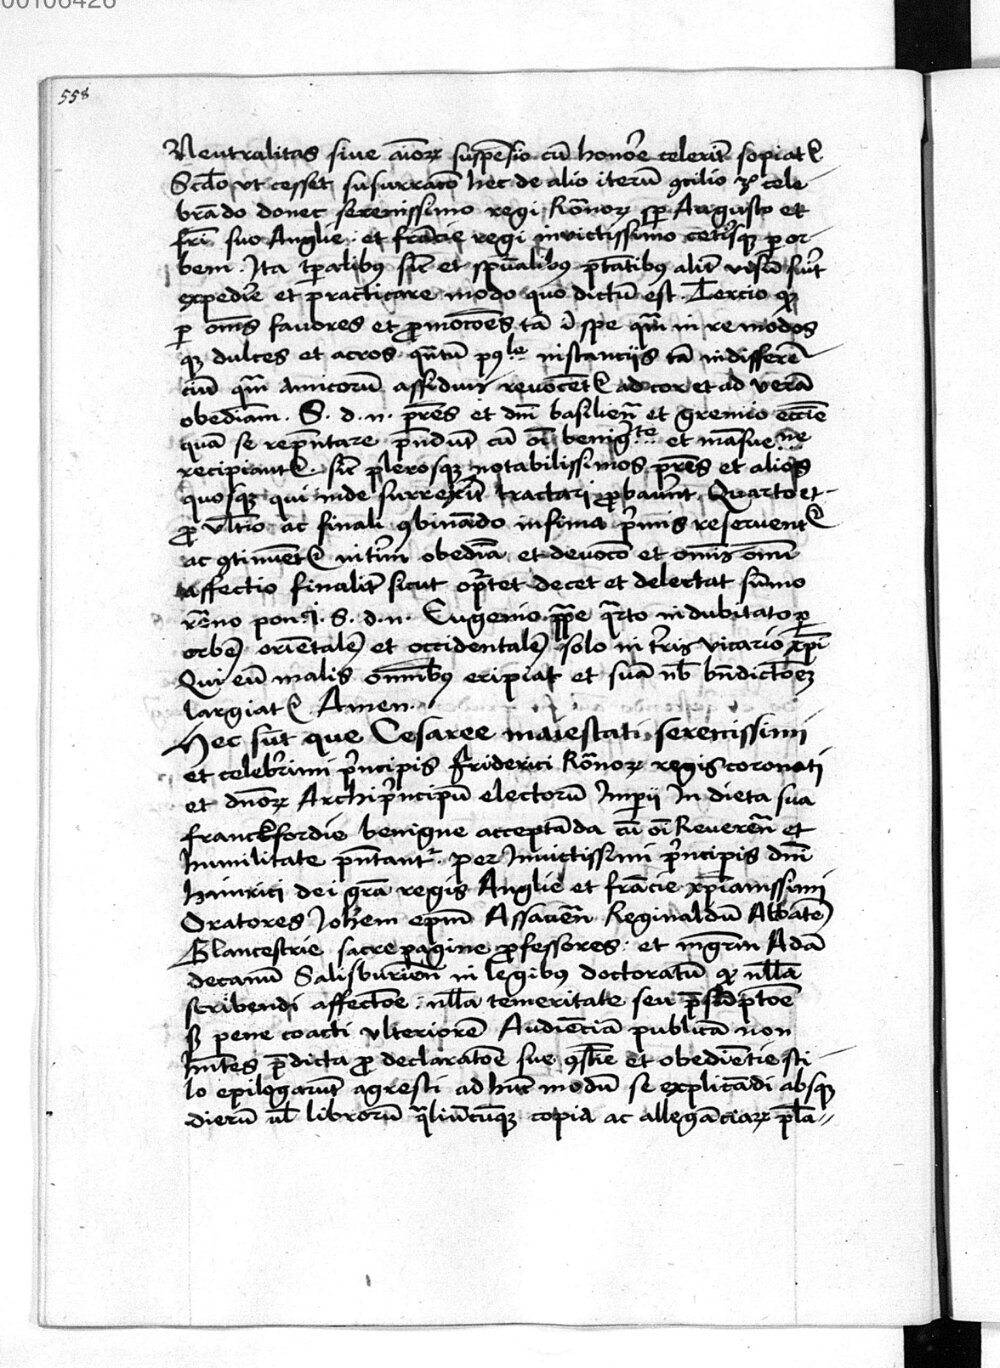 00106426
558
Neutralitas sive aiorꝝ suspēsio cū honore celerit͛ sopiat᷑
Scdo vt cesset susurracō hec de alio iterū ꝯcilio ȝo cele
brādo donec serenissimo regi Rōnorꝝ sp Augusto et
fri suo Anglie et frācie regi invictissimo cetisqꝫ p or
bem. Ita tpalibꝰ sic et spūalibꝰ ptātibꝰ alit͛ visū fuit
expedire et practicare modo quo dictū est. Tercio qꝫ
p om̄s favores et ꝓmocōes tā ī spe qꝫ in re modos
qꝫ dulces et acros qntū possibile instanciis tā indifferē
ciū qꝫ amicorū assidui revocēt᷑ ad cor et ad verā
obediām. S. d. n. p̄res et dn̄i basiliēn et gremio eccīe
quā se repn̄tare pn̄dūt cū oī benigte et māsuene
recipiant᷑ sic plerosqꝫ notabilissimos pres et alios
quosqꝫ qui inde surrexūt tractari ꝓbavnt. Quarto et
ꝓ vltīo ac finali ꝯbinādo infima p̄mis reservent᷑
ac ꝯtinuēt᷑ int̄im obediā et devocō et om̄is om̄i
affectio finalit͛ sicut oportet decet et delectat sūmo
rōno pon. S. d. n. Eugenio ppe qrto indubitato p
orbeȝ oriētaleȝ et occidentaleȝ solo in tris vicario xp̄i
Qui eū malis om̄ibꝰ eripiat et suā nb̄ bn̄dictōeȝ
largiat᷑ Amen.
Hec sūt que Cesaree maiestati serenissimi
et celebrimi p̄ncipis Friderici Rōnorꝝ regis coronati
et dn̄orꝝ Archip̄ncipū electorū Imp̄ii In dieta sua
franckfordie benigne acceptāda cū oī Reverēn et
humilitate pn̄tant᷑. per Invictissimi p̄ncipis dn̄i
hainrici dei grā regis Anglie et frācie xp̄ianissimi
Oratores Johēm epm̄ Assavēn Reginaldū Abbateȝ
Glancestrie sacre pagine ꝓfessores. et mgrm̄ Adā
decanū Salisburieñ in legibꝰ doctoratū qꝫ nlla
scribendi affectōe. nlla temeritate seu p̄sūptōe
sꝫ pene coacti vlteriorē Audienciā publicā non
hn̄tes p̄dicta ꝓ declaratōe sue ꝯstie et obediētie sti
lo epilogarūt agresti ad hūc modū se explicādi absqꝫ
dierū vl librorū qliūcūqꝫ copia ac allegāciarꝝ pla